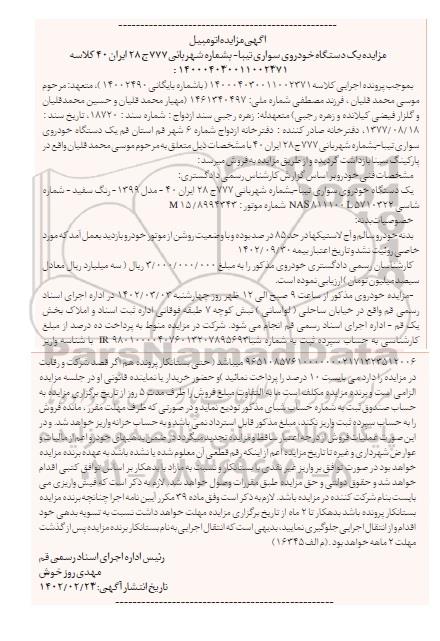 آگهی مزایده اتومبیل
مزایده یک دستگاه خودروی سواری تیبا- بشماره شهربانی ۷۷۷ج۲۸ ایران ۴۰ کلاسه
۱۴۰۰۰۴۰۳۰۰۱۱۰۰۲۳۷۱ :
بموجب پرونده اجرایی کلاسه ۱۴۰۰۰۴۰۳۰۰۱۱۰۰۲۳۷۱ (باشماره بایگانی ۱۴۰۰۲۴۹۰)، متعهد: مرحوم
موسی محمد قلیان ، فرزند مصطفی شماره ملی: ۱۴۶۱۳۴۰۴۹۷ (مهیار محمد قلیان و حسین محمدقلیان
و گلزار فیضی کیلانده و زهره رجبی) متعهدله: زهره رجبی سند ازدواج : شماره سند : ۱۸۷۲۰، تاریخ سند :
۱۳۷۷/۰۸/۱۸، دفترخانه صادر کننده : دفترخانه ازدواج شماره ۶ شهر قم استان قم یک دستگاه خودروی
سواری تیبا-بشماره شهربانی ۷۷۷ج۲۸ ایران ۴۰ با مشخصات ذیل متعلق به مرحوم موسی محمد قلیان واقع در
پارکینگ سینا بازداشت گردیده و از طریق مزایده به فروش میرسد:
مشخصات فنی خودرو بر اساس گزارش کارشناس رسمی دادگستری:
یک دستگاه خودروی سواری تیبا-بشماره شهربانی ۷۷۷ج ۲۸ ایران ۴۰ - مدل ۱۳۹۹- رنگ سفید - شماره
شاسی NAS۸۱۱۱۰۰L۵۷۱۰۳۲۲ شماره موتور : M۱۵/۸۹۹۴۳۴۳
خصوصیات بدنه:
بدنه خودرو سالم و آج لاستیکها در حد ۸۵ در صد بوده و با وضعیت روشن از موتور خودرو بازدید بعمل آمد که مورد
خاصی روئیت نشد و تاریخ اعتبار بیمه ۱۴۰۲/۰۹/۳۰
کارشناسان رسمی دادگستری خودروی مذکور را به مبلغ ۳/۰۰۰/۰۰۰/۰۰۰ ریال ( سه میلیارد ریال معادل
سیصد میلیون تومان) ارزیابی نموده است.
-مزایده خودروی مذکور از ساعت ۹ صبح الی ۱۲ ظهر روز چهارشنبه ۱۴۰۲/۰۳/۰۳ در اداره اجرای اسناد
رسمی قم واقع در خیابان ساحلی ( لواسانی ) نبش کوچه ۷ طبقه فوقانی اداره ثبت اسناد و املاک بخش
یک قم - اداره اجرای اسناد رسمی قم انجام می شود. شرکت در مزایده منوط به پرداخت ده درصد از مبلغ
کارشناسی به حساب سپرده ثبت به شماره شبا IR ۹۸۰۱۰۰۰۰۴۰۷۶۰۱۳۲۰۷۸۹۵۶۹۳ با شناسه واریز
۹۶۵۱۰۸۵۷۶۱۰۰۰۰۰۰۰۲۱۷۱۳۲۳۵۱۲۰۰۶ میباشد ( حتی بستانکار پرونده هم اگر قصد شرکت و رقابت
در مزایده را دارد می بایست ۱۰ درصد را پرداخت نمائید )و حضور خریدار یا نماینده قانونی او در جلسه مزایده
الزامی است و برنده مزایده مکلف است ما به التفاوت مبلغ فروش را ظرف مدت ۵ روز از تاریخ برگزاری مزایده به
حساب صندوق ثبت به شماره حساب شبای مذکور تودیع نماید و در صورتی که ظرف مهلت مقرر ، مانده فروش
را به حساب سپرده ثبت واریز نکند، مبلغ مذکور قابل استرداد نمی باشد و به حساب خزانه واریز خواهد شد. و در
این صورت عملیات فروش از درجه اعتبار ساقط و مزایده تجدید میگردد در ضمن بدهیهای خودرو اعم از مالیات و
عوارض شهرداری و غیره تا تاریخ مزایده اعم از اینکه رقم قطعی آن معلوم شده یا نشده باشد به عهده برنده مزایده
خواهد بود در صورت توافق بر واریز غیر نقدی با بستانکار و نسبت به مازاد با بدهکار بر اساس توافق کتبی اقدام
خواهد شد و حقوق دولتی و حق مزایده طبق مقررات وصول خواهد شد. لازم به ذکر است که فیش واریزی می
بایست بنام شرکت کننده در مزایده باشد. لازم به ذکر است وفق ماده ۳۹ مکرر آیین نامه اجرا چنانچه برنده مزایده
بستانکار پرونده باشد بدهکار تا ۲ ماه از تاریخ برگزاری مزایده مهلت خواهد داشت نسبت به تسویه بدهی خود
اقدام و از انتقال اجرایی جلوگیری نمایید، بدیهی است که انتقال اجرایی به نام بستانکار برنده مزایده پس از گذشت
مهلت ۲ ماهه خواهد بود . (م الف ۱۶۳۴۵)
رئیس اداره اجرای اسناد رسمی قم
مهدی روز خوش
تاریخ انتشار آگهی: ۱۴۰۲/۰۲/۲۴